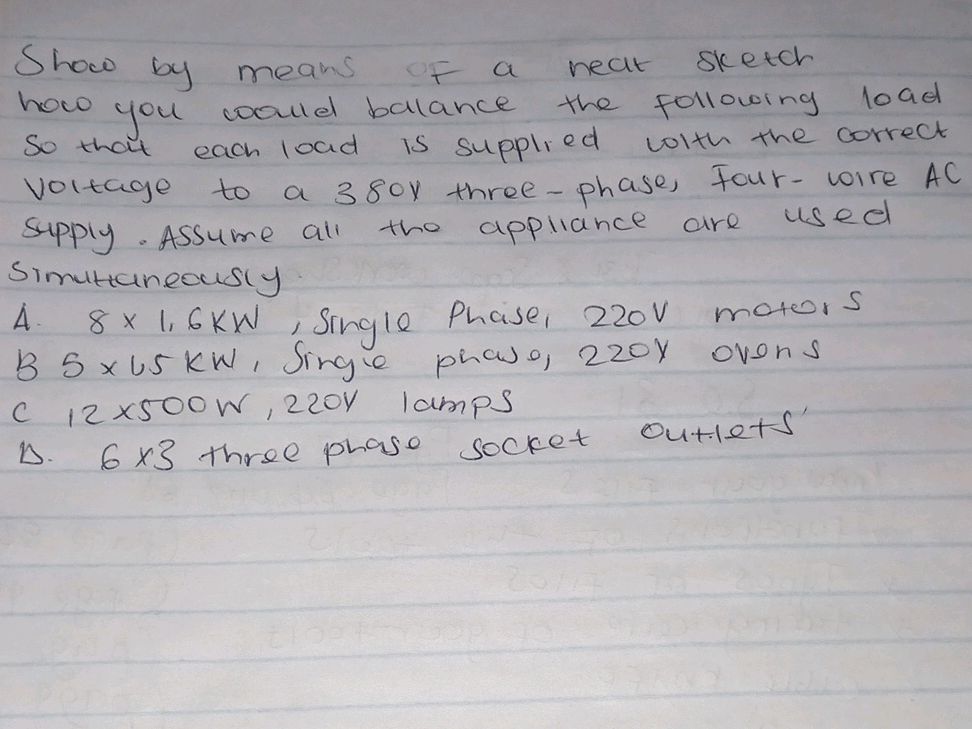 Show by means of a neat sketch
how you would balance the following load
so that each load is supplied with the correct
Voltage to a 380V three-phase, Four-wire AC
supply. Assume all the appliance are used
Simultaneously.
A. 8 x 1,6KW, Single Phase, 220V motors
B 5 x 1,5 KW, Single phase, 220V ovens
C 12 x 500W, 220V lamps
D. 6 x 3 three phase socket outlets